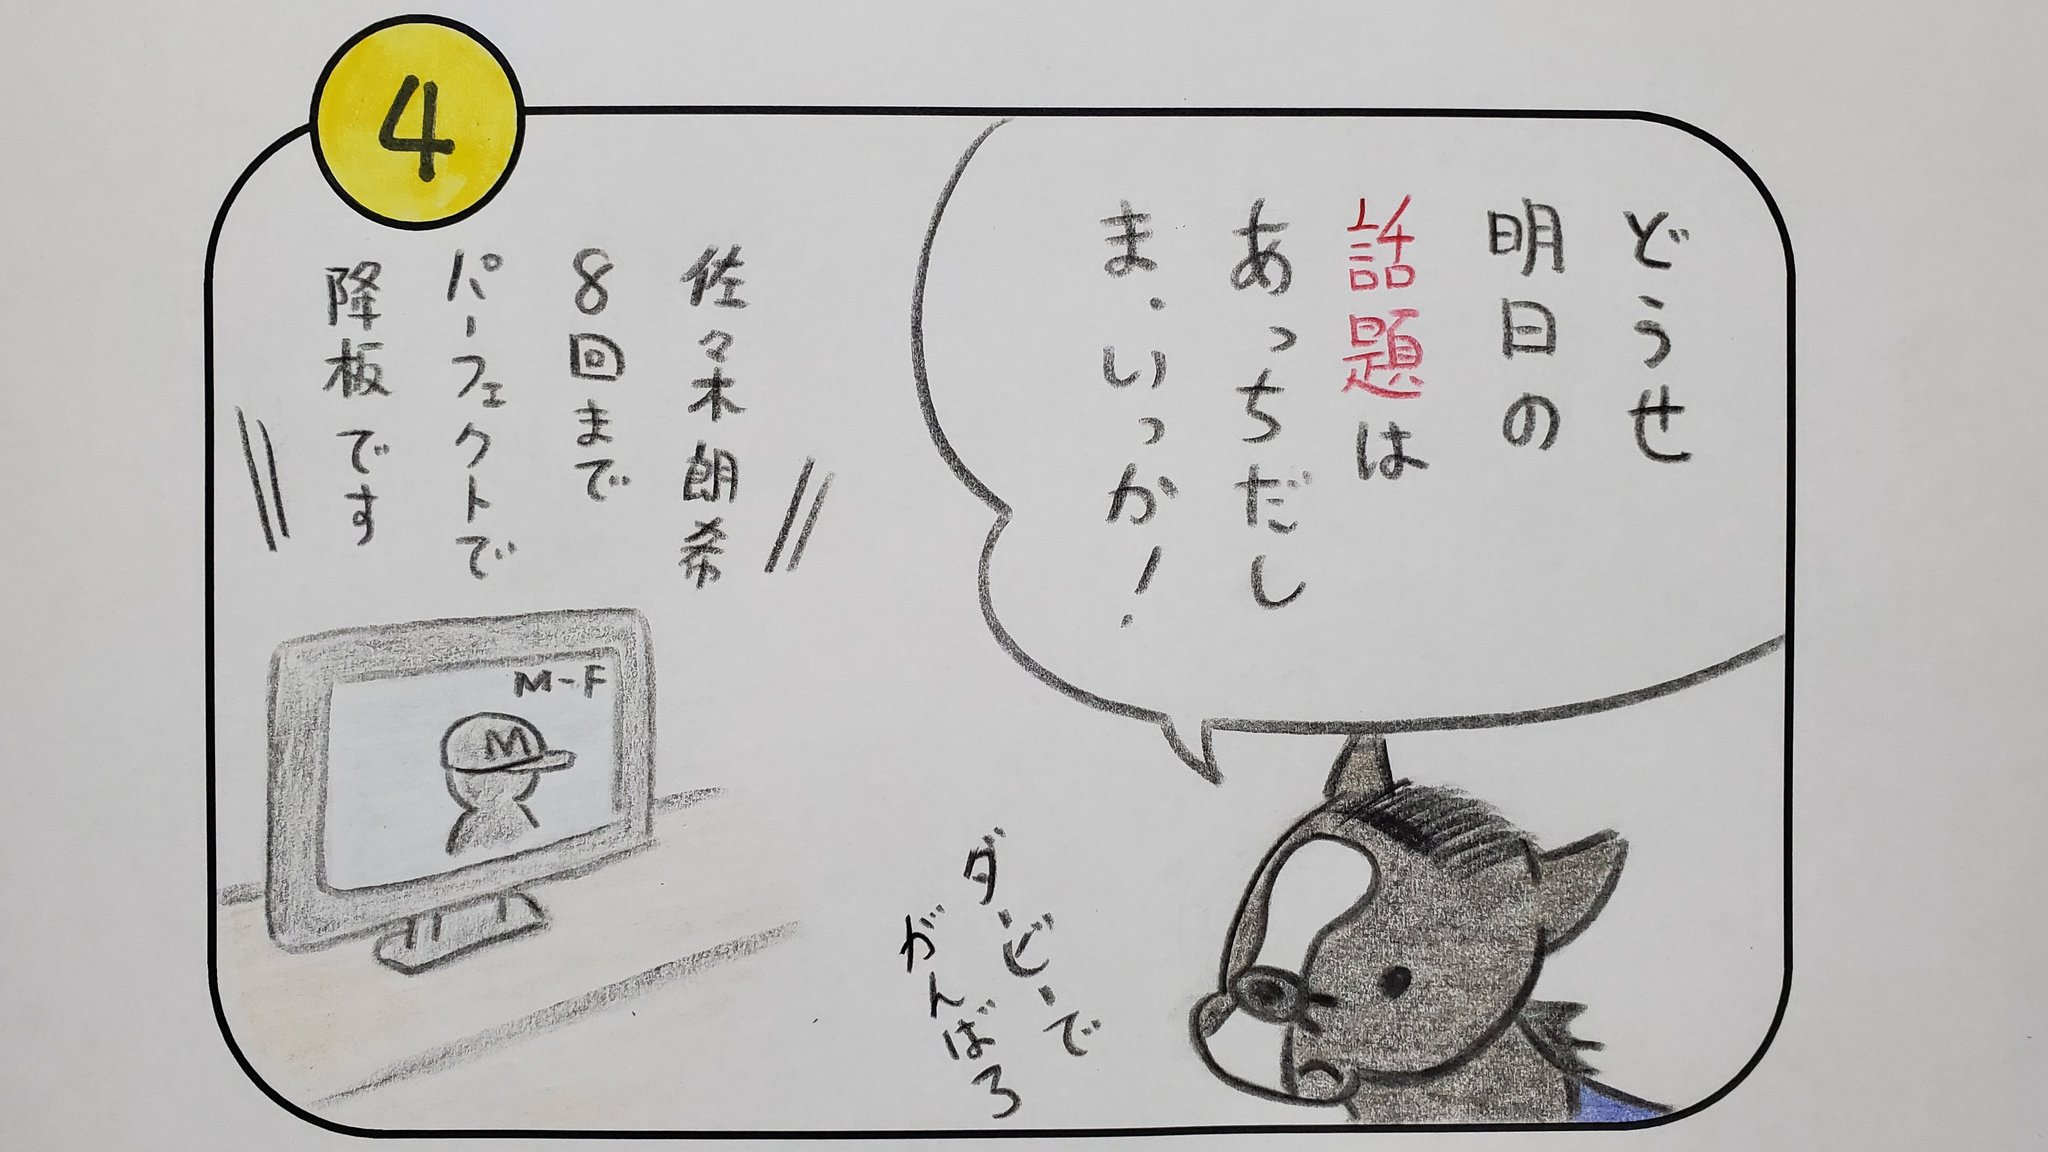 4
どうせ
明日の
話題は
あっちだし
ま、いっか！
佐々木朗希
8回まで
パーフェクトで
降板です
M-F
M
ダービーで
がんばろ